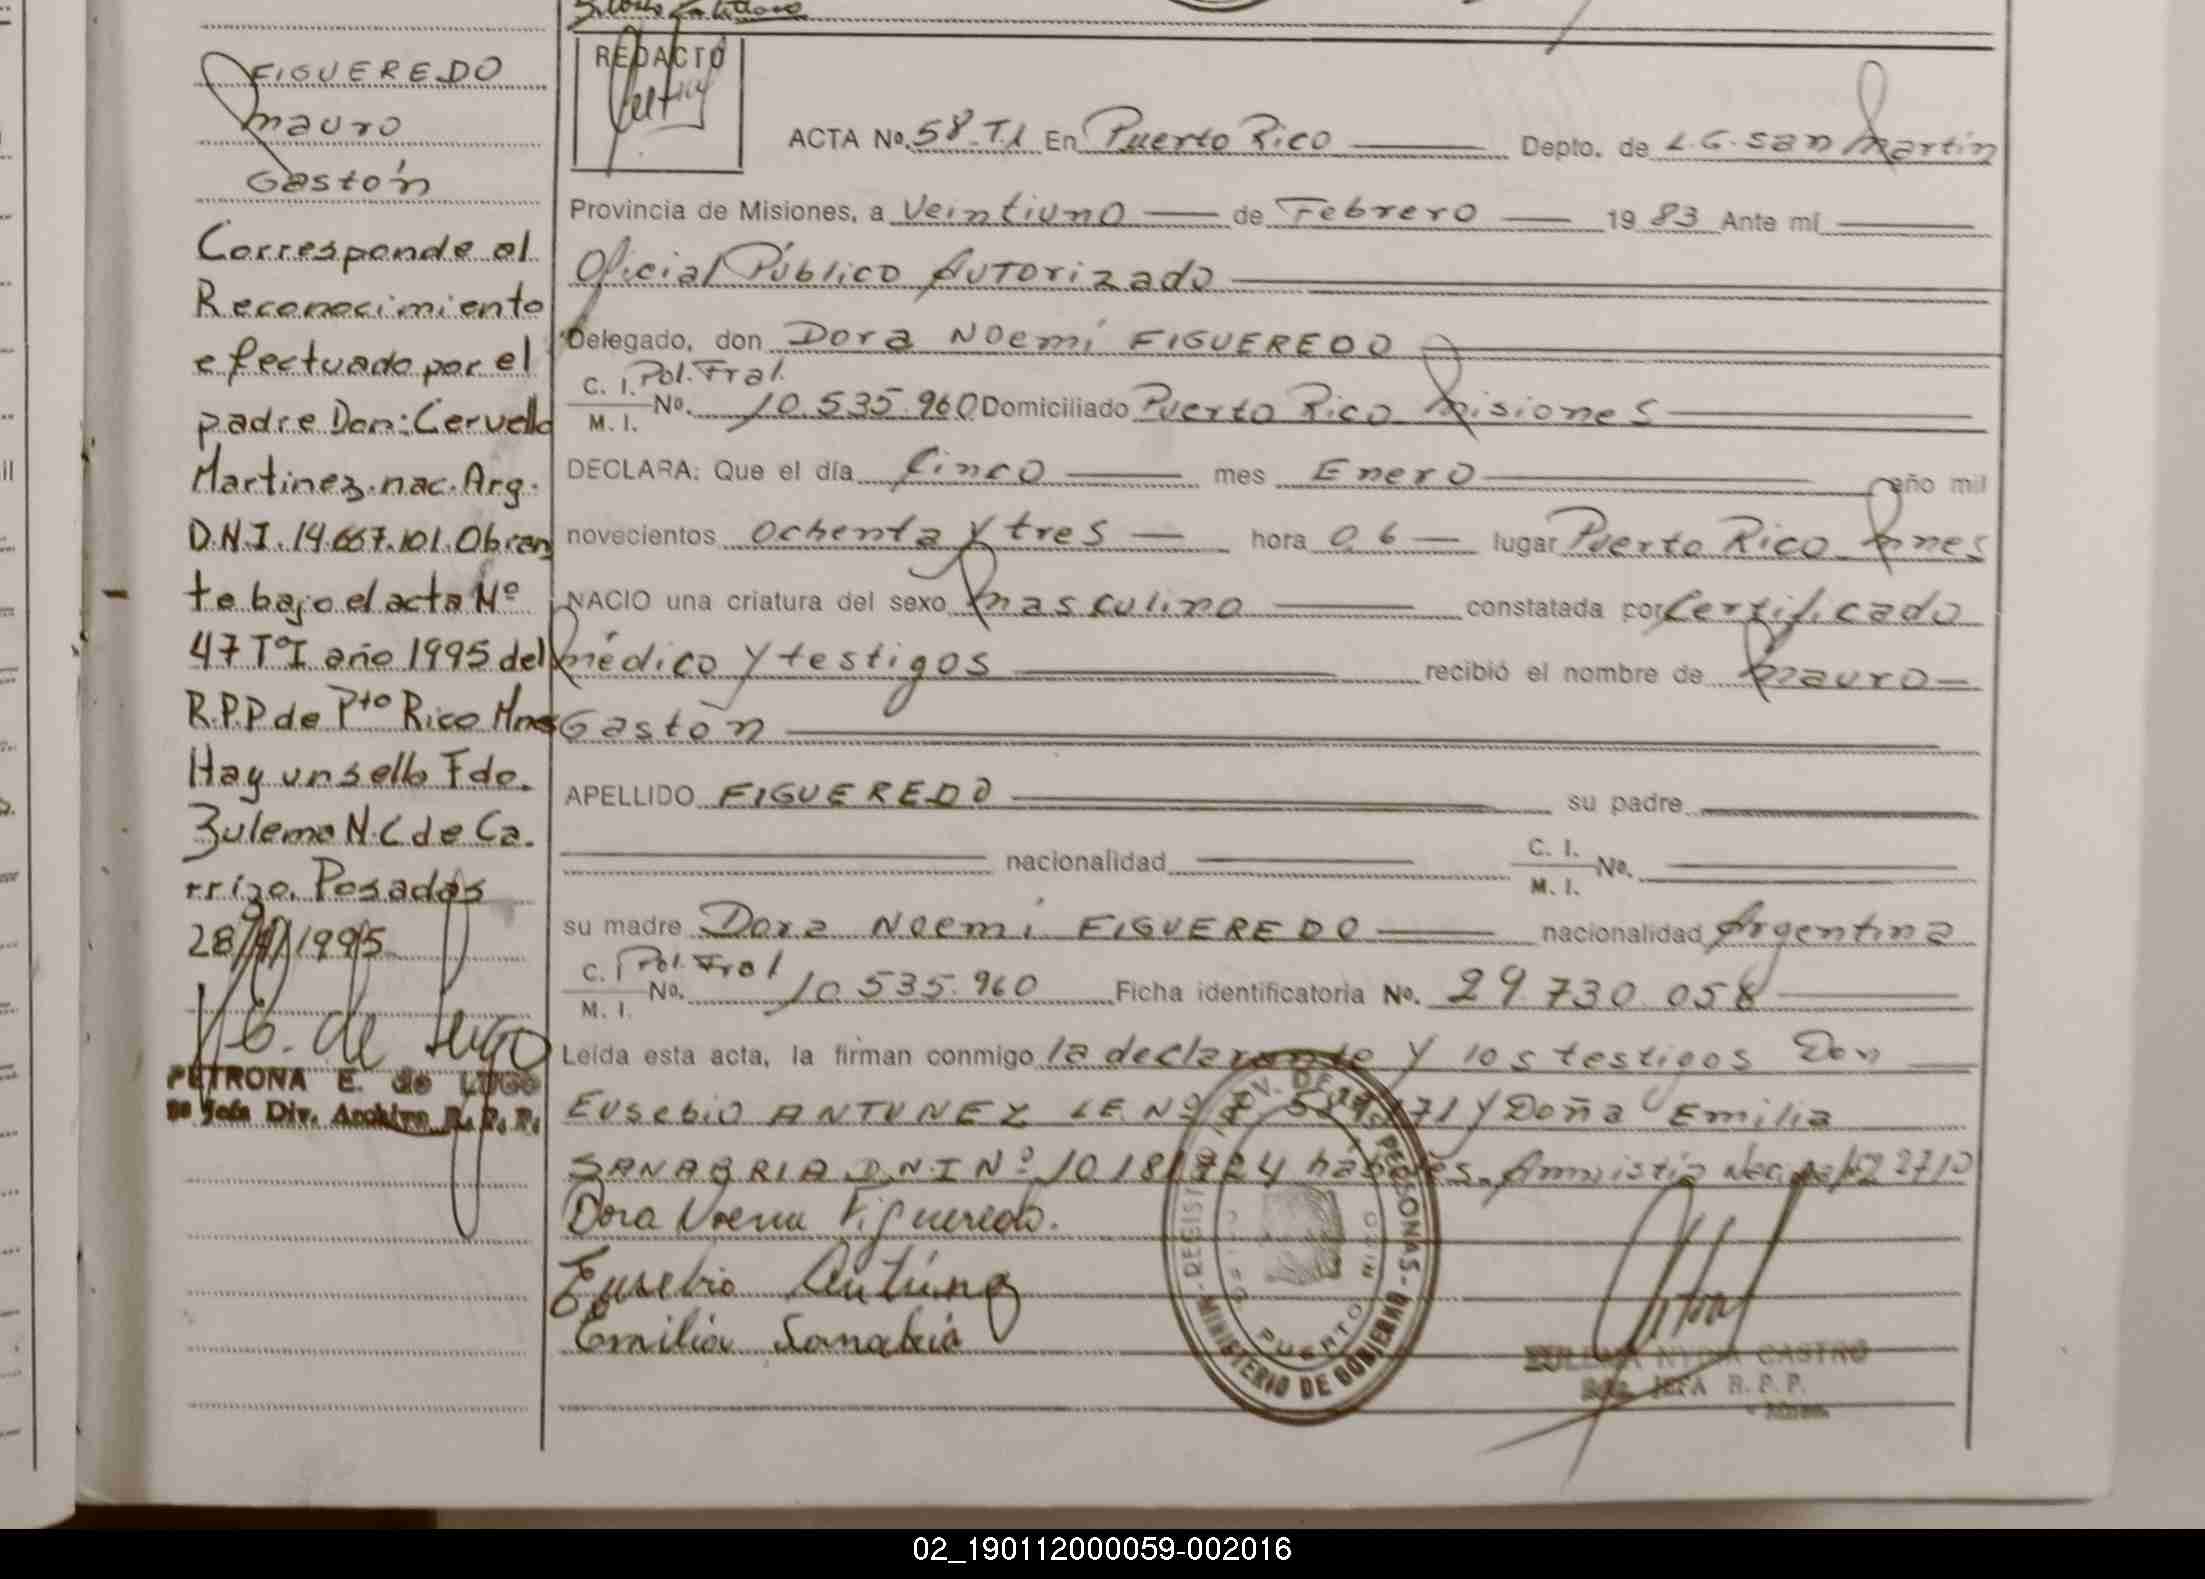 FIGUEREDO
Mauro
Gastón
Corresponde al
Reconocimiento
efectuado por el
padre Don: Cervello
Martinez. nac. Arg.
D.N.I. 14.667.101. Obran
te bajo el acta Nº
47 TºI año 1995 del
R.P.P de Pto Rico Mnes
Hay un sello Fdo.
Zulema N.C de Ca.
rrizo. Posadas
28/ /1995
PETRONA E. de LUGO
Jefa Div. Archivo R. P. P.
REDACTO
ACTA Nº. 58-T.I En Puerto Rico Depto. de L.G. San Martín
Provincia de Misiones, a Veintiuno de Febrero 19 83 Ante mí
Oficial Público Autorizado
Delegado, don Dora Noemí FIGUEREDO
C. I. Pol. Fral.
M. I. Nº. 10.535.960 Domiciliado Puerto Rico Misiones
DECLARA: Que el día Cinco mes Enero año mil
novecientos Ochenta y tres hora 06 lugar Puerto Rico Mnes
NACIO una criatura del sexo Masculino constatada por Certificado
Médico y testigos recibió el nombre de Mauro
Gastón
APELLIDO FIGUEREDO su padre
nacionalidad C. I. M. I. Nº.
su madre Dora Noemí FIGUEREDO nacionalidad Argentina
C. I. Pol. Fral
M. I. Nº. 10.535.960 Ficha identificatoria Nº. 29.730.058
Leída esta acta, la firman conmigo la declarante y los testigos Don
Eusebio ANTUNEZ L.E Nº 7. y Doña Emilia
SANABRIA D.N.I Nº hábiles. Amnistía
Dora Noemi Figueredo.
Eusebio Antúnez
Emilia Sanabria
MINISTERIO DE GOBIERNO
PUERTO RICO
ZULEMA NYDIA CASTRO
JEFA R. P. P.
02_190112000059-002016